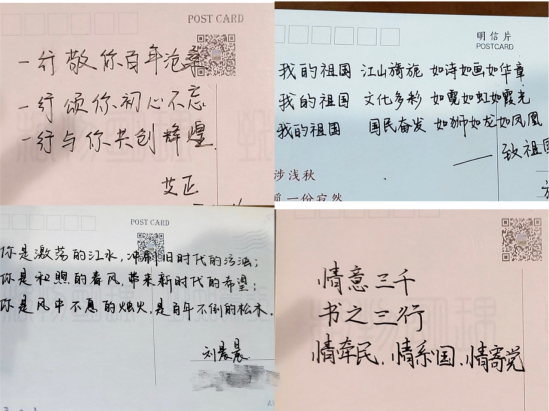 POST CARD
一行敬你百年沧桑
一行颂你初心不忘
一行与你共创辉煌
艾正
明信片
POSTCARD
我的祖国 江山旖旎 如诗如画如华章
我的祖国 文化多彩 如霓如虹如霞光
我的祖国 国民奋发 如狮如龙如凤凰
——致祖国
涉浅秋
前一份寂然
POST CARD
你是激荡的江水,冲刷旧时代的污浊;
你是和煦的春风,带来新时代的希望;
你是风中不息的烛火,是百年不倒的松木.
刘晨晨
情意三千
书之三行
情牵民、情系国、情寄党